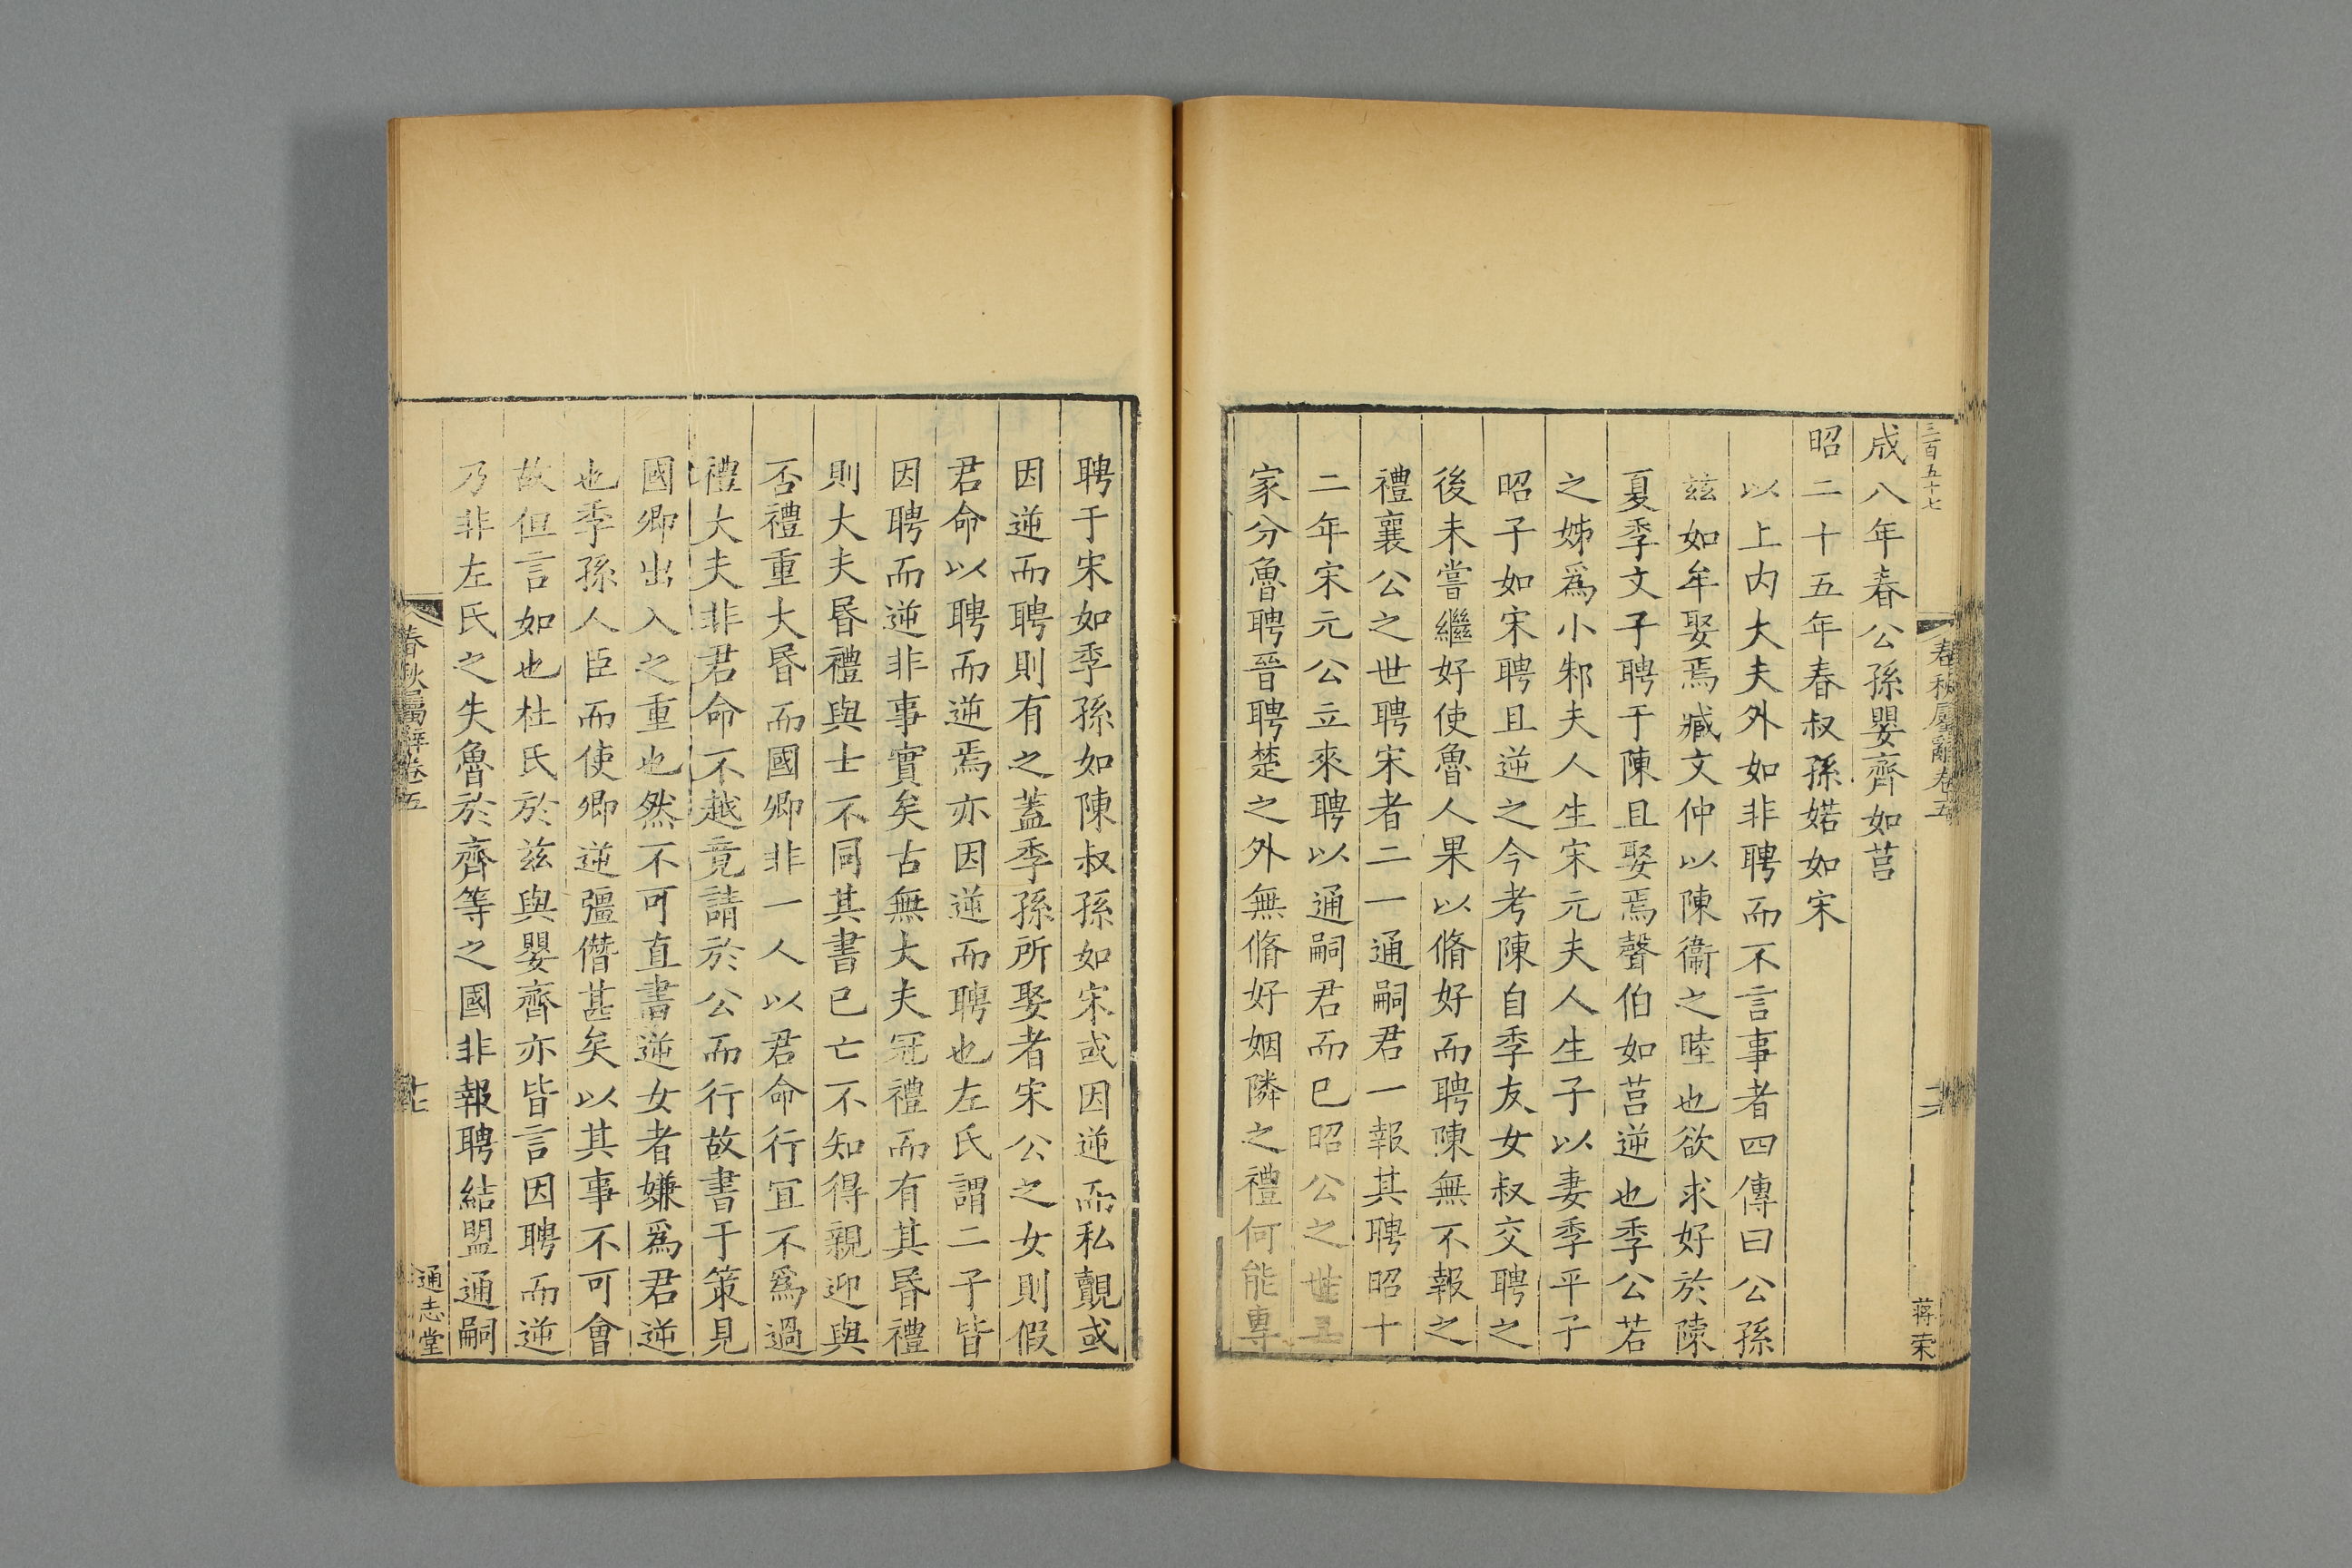 三百五十七
春秋屬辭卷五
蔣荣
成八年春公孫嬰齊如莒
昭二十五年春叔孫婼如宋
以上內大夫外如非聘而不言事者四傳曰公孫
兹如牟娶焉臧文仲以陳衞之睦也欲求好於陳
夏季文子聘于陳且娶焉聲伯如莒逆也季公若
之姊爲小邾夫人生宋元夫人生子以妻季平子
昭子如宋聘且逆之今考陳自季友女叔交聘之
後未嘗繼好使魯人果以脩好而聘陳無不報之
禮襄公之世聘宋者二一通嗣君一報其聘昭十
二年宋元公立來聘以通嗣君而已昭公之世五
家分魯聘晉聘楚之外無脩好姻隣之禮何能專
聘于宋如季孫如陳叔孫如宋或因逆而私覿或
因逆而聘則有之蓋季孫所娶者宋公之女則假
君命以聘而逆焉亦因逆而聘也左氏謂二子皆
因聘而逆非事實矣古無大夫冠禮而有其昬禮
則大夫昬禮與士不同其書已亡不知得親迎與
否禮重大昬而國卿非一人以君命行宜不爲過
禮大夫非君命不越竟請於公而行故書于策見
國卿出入之重也然不可直書逆女者嫌爲君逆
也季孫人臣而使卿逆彊僭甚矣以其事不可會
故但言如也杜氏於兹與嬰齊亦皆言因聘而逆
乃非左氏之失魯於齊等之國非報聘結盟通嗣
春秋屬辭卷五
十七
通志堂